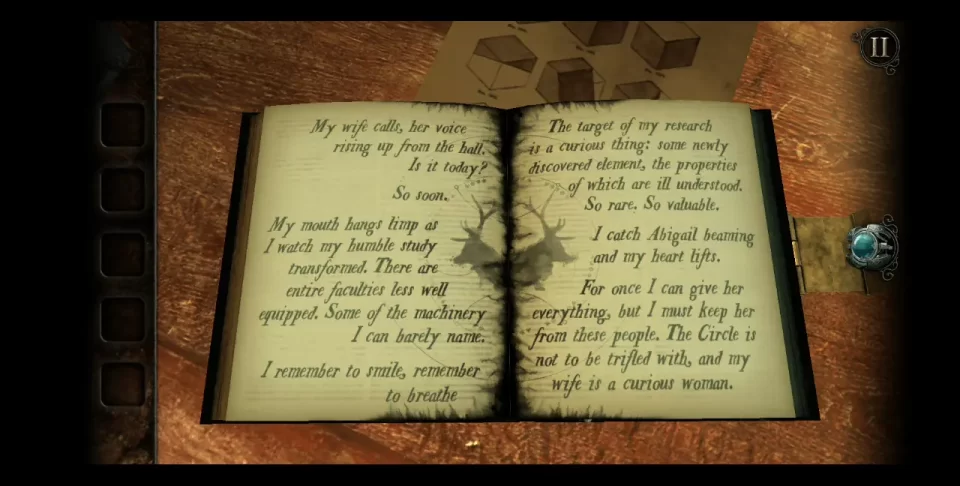 My wife calls, her voice
rising up from the hall.
Is it today?
So soon.
My mouth hangs limp as
I watch my humble study
transformed. There are
entire faculties less well
equipped. Some of the machinery
I can barely name.
I remember to smile, remember
to breathe
The target of my research
is a curious thing: some newly
discovered element, the properties
of which are ill understood.
So rare. So valuable.
I catch Abigail beaming
and my heart lifts.
For once I can give her
everything, but I must keep her
from these people. The Circle is
not to be trifled with, and my
wife is a curious woman.
II